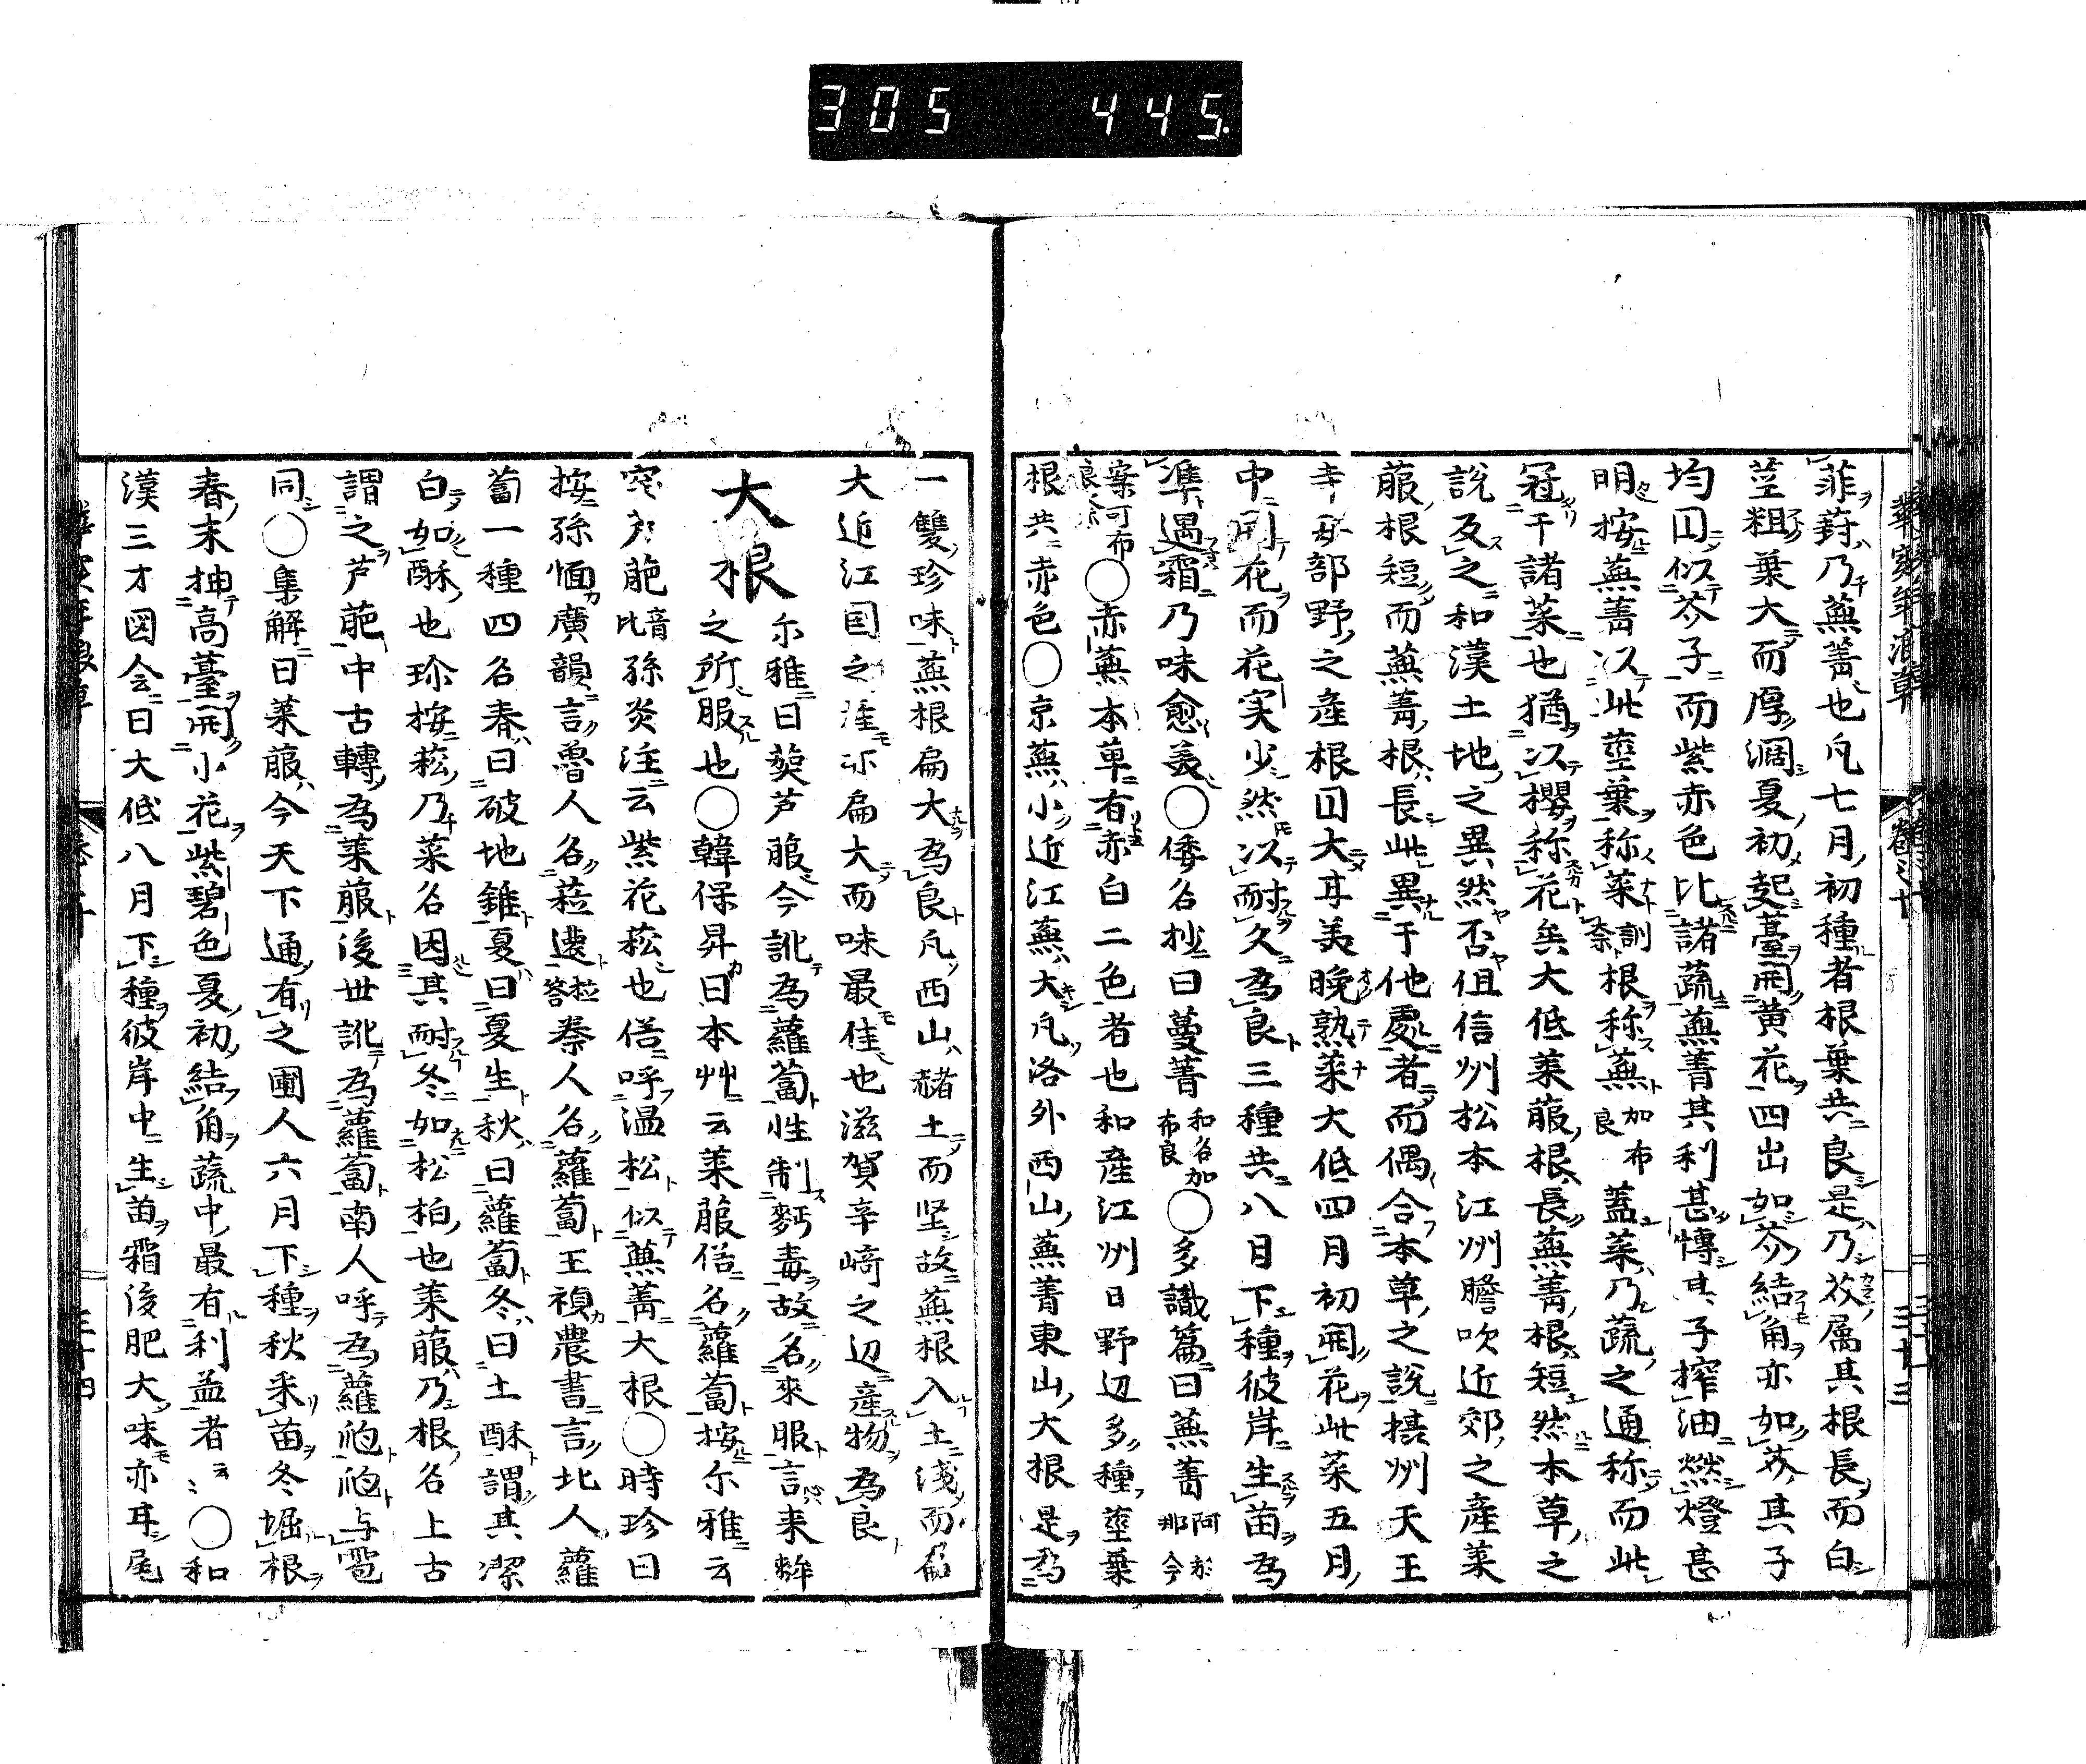 305 445.
菲葑乃蕪菁也凡七月初種者根葉共良是乃芥属其根長而白
茎粗葉大而厚濶夏初起薹開黄花四出如芥結角亦如芥其子
均囗似芥子而紫赤色比諸蔬蕪菁其利甚慱其子搾油燃燈甚
明按蕪菁以此莖葉称菜訓奈根称蕪加布良蓋菜乃蔬之通称而此
冠干諸菜也猶以櫻称花矣大低菜菔根長蕪菁根短然本草之
說反之和漢土地之異然否但信州松本江州膽吹近郊之産菜
菔根短而蕪菁根長此異于他處者而偶合本草之說摂州天王
寺安部野之産根囗大耳美晩熟菜大低四月初開花此菜五月
中開花而花实少然以耐久為良三種共八日下種彼岸生苗為
準遇霜乃味愈美〇倭名抄曰蔓菁和名加布良〇多識篇曰蕪菁阿於那今
案可布良奈〇赤蕪本草有赤白二色者也和産江州日野辺多種莖葉
根共赤色〇京蕪小近江蕪大凡洛外西山蕪菁東山大根是為
一雙珍味蕪根扁大為良凡西山赭土而坚故蕪根入土淺而扁
大近江国之産亦扁大而味最佳也滋賀辛﨑之辺産物為良
大根
尓雅曰葖芦菔今訛為蘿蔔性制麪毒故名來服言来麰
之所服也〇韓保昇曰本艸云莱服俗名蘿蔔按尓雅云
葖芦萉音比孫炎注云紫花菘也俗呼温松似蕪菁大根〇時珍曰
按孫愐廣韻言魯人名菈䔰拉答秦人名蘿蔔王禎農書言北人蘿
蔔一種四名春曰破地錐夏曰夏生秋曰蘿蔔冬曰土酥謂其潔
白如酥也珍按菘乃菜名因其耐冬如松柏也莱菔乃根名上古
謂之芦萉中古轉為莱菔後世訛為蘿蔔南人呼為蘿瓝瓝与雹
同〇集解曰莱菔今天下通有之圃人六月下種秋采苗冬堀根
春末抽高薹開小花紫碧色夏初結角蔬中最有利益者云〻〇和
漢三才図会曰大低八月下種彼岸中生苗霜後肥大味亦耳尾